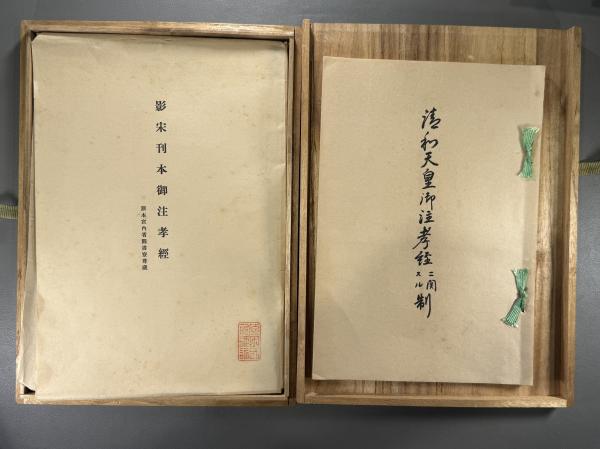 影宋刊本御注孝經
原本宮內省圖書寮尊藏
清和天皇御注孝経ニ関スル制